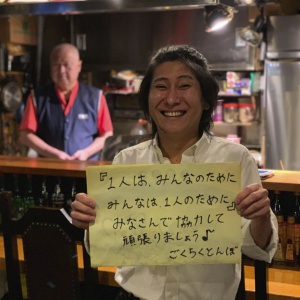 『1人は、みんなのために
みんなは、1人のために』
みなさんで協力して
頑張りましょう♪
ごくらくとんぼ